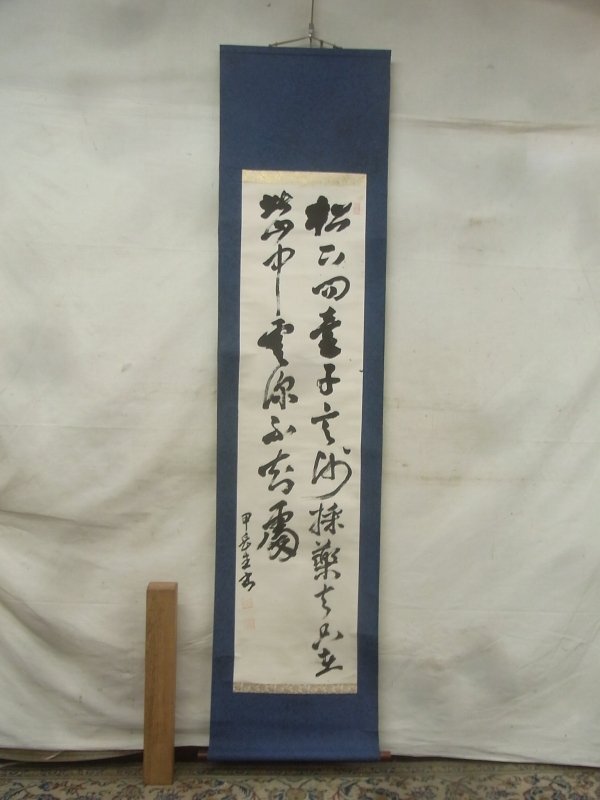 松下問童子言師採藥去只在
此山中雲深不知處